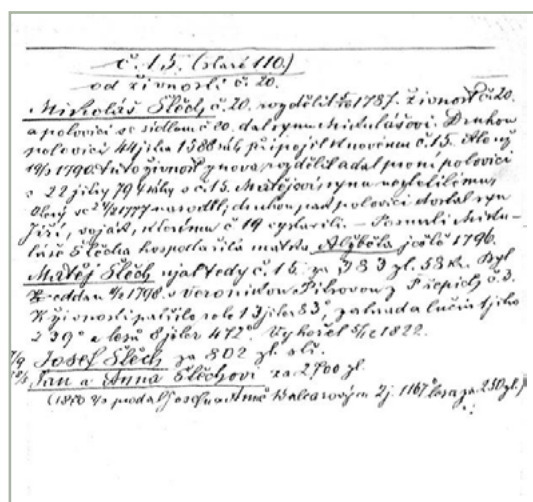 č. 15. (staré 110.)
od živnosti č. 20.
Mikoláš Šlěch č. 20. rozdělil 1787. živnost č. 20.
a polovici se sídlem č 20. dal synu Mikulášovi. Druhou
polovici 44 jiter 1588 sáh. připojil k novému č. 15. Ale již
1790. tuto živnost znova rozdělil a dal první polovici
s 22 jitry 794 sáhy s č. 15. Matějovi, synu nejstaršímu,
který se 1777 narodil, druhou pak polovici dostal syn
Jiří, voják, kterému č 19 vystavěli. – Po smrti Miku-
láše Šlěcha hospodařila matka Alžběta ještě 1796.
Matěj Šlěch ujal tedy č. 15. za 383 zl. 58 kr. Byl
oddán 1798. s Veronikou z Přepich č. 3.
K živnosti patřilo role 13 jiter 83°, zahrad a lučin 1 jitro
239° a lesů 8 jiter 472°. Vyhořel 1822.
Josef Šlěch za 802 zl. stř.
Jan a Anna Šlěchovi za 2700 zl.
(1870 prodal Josefu a Anně 2 j. 1167 lesa za 250 zl.)